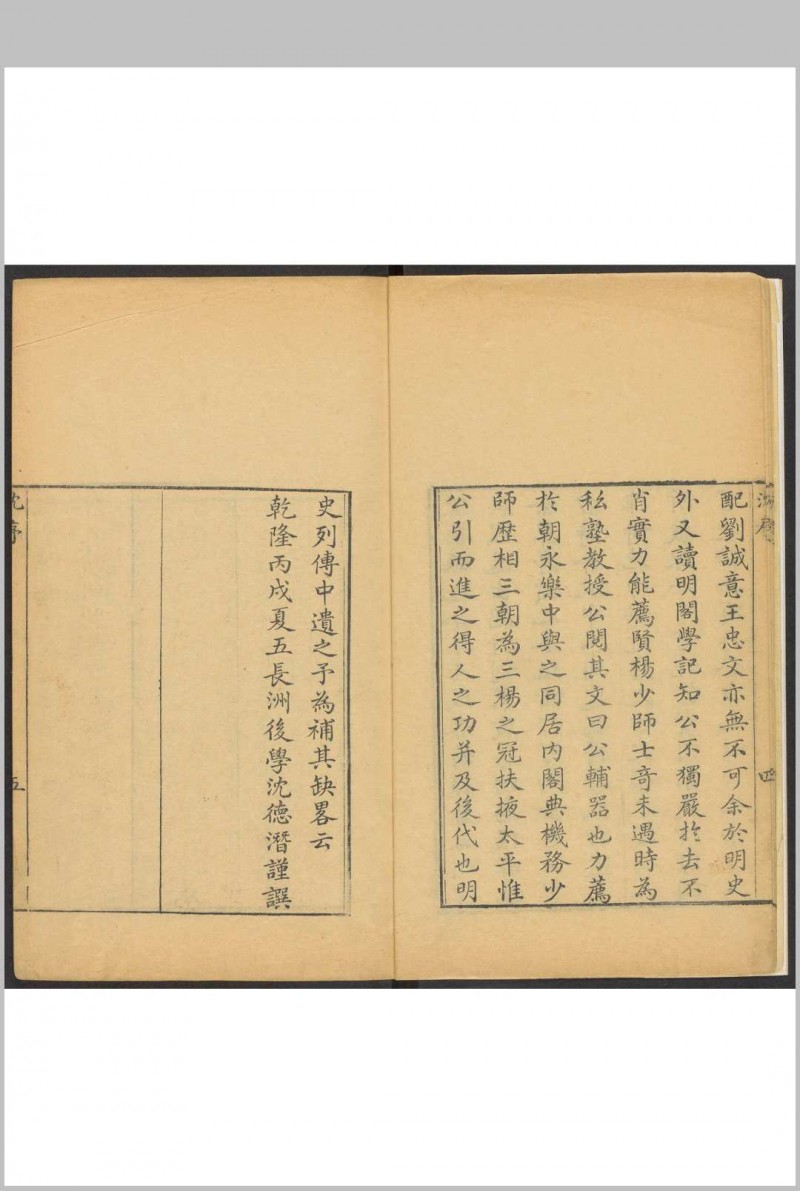 沈序
四
配劉誠意王忠文亦無不可余於明史
外又讀明閣學記知公不獨嚴扵去不
肖實力能薦賢楊少師士奇未遇時為
私塾教授公閱其文曰公輔器也力薦
扵朝永樂中與之同居內閣典機務少
師歷相三朝為三楊之冠扶掖太平惟
公引而進之得人之功并及後代也明
史列傳中遺之予為補其缺畧云
乾隆丙戌夏五長洲後學沈德潛謹譔
沈序
五